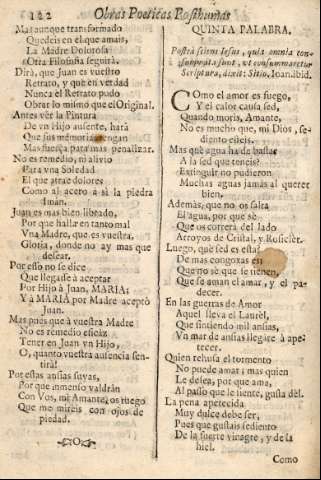 122 Obras Poeticas Posthumas
Mas aunque transformado
Quedeis en el que amais,
La Madre Dolorosa
Otra Filosofia seguirà.
Dirà, que Juan es vuestro
Retrato, y que en verdad
Nunca el Retrato puede
Obrar lo mismo que el Original.
Antes vèr la Pintura
De vn Hijo ausente, harà
Que sus memorias tengan
Mas fuerça para mas penalizar.
No es remedio, ni alivio
Para vna Soledad
El que atrae dolores
Como al acero a sì la piedra
Imàn.
Juan es mas bien librado,
Por que hallar en tanto mal
Vna Madre, que es vuestra,
Gloria, donde no ay mas que
desear.
Por esso no se dice
Que llegasse à aceptar
Por Hijo à Juan, MARIA;
Y à MARIA por Madre aceptò
Juan.
Mas pues que à vuestra Madre
No es remedio eficàz
Tener en Juan vn Hijo,
O, quanto vuestra ausencia sen-
tirà!
Por estas ansias suyas,
Por que inmenso valdràn
Con Vos, mi Amante, os ruego
Que me mireis con ojos de
piedad.
QUINTA PALABRA.
Posteà sciens Iesus, quia omnia con-
summata sunt, vt consummaretur
Scriptura, dixit: Sitio, Ioan. ibid.
COmo el amor es fuego,
Y el calor causa sed,
Quando moris, Amante,
No es mucho que, mi Dios, se-
diento esteis.
Mas què agua ha de bastar
A la sed que teneis?
Extinguir no pudieron
Muchas aguas jamàs al querer
bien.
Ademàs, que no os falta
El agua, por que sè
Que os correrà del lado
Arroyos de Cristal, y Rosiclèr.
Luego, què sed es esta?
De mas congoxas es;
Que no sè que se tienen,
Que se aman el amar, y el pa-
decer.
En las guerras de Amor
Aquel lleva el Laurèl,
Que sintiendo mil ansias,
Vn mar de ansias llegare à ape-
tecer.
Quien rehusa el tormento
No puede amar; mas quien
Le desea, por que ama,
Al passo que le siente, gusta dèl.
La pena apetecida
Muy dulce debe ser,
Pues que gustais sediento
De la suerte vinagre, y de la
hiel.
Como